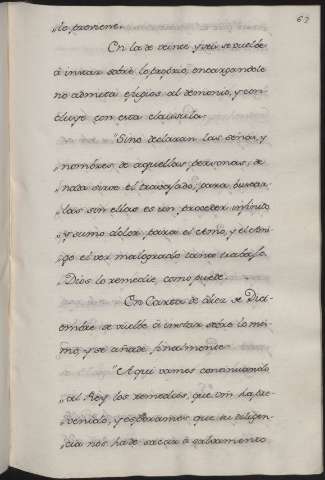 63
le proviene.
En la de veinte y seis se vuelbe
à instar sobre lo proprio, encargandole
no admita efugios al demonio, y con-
cluye con esta clausula.
"Si no declaran las señas, y
"nombres de aquellas personas, de
"nada sirve el travajado; para buscar
"las sin ellas es un proceder infinito
"y sumo dolor, para el Amo, y el Ami-
"go el ver malogrado tanto trabajo
"Dios lo remedie, como puede.
En Carta de diez de Dici-
embre se vuelbe à instar sobre lo mis-
mo, y se añade finalmente
"Aqui vamos continuando
"al Rey los remedios, que Vm. ha pre-
"venido, y esperamos que tu diligen-
"cia nos ha de sacar à salvamento